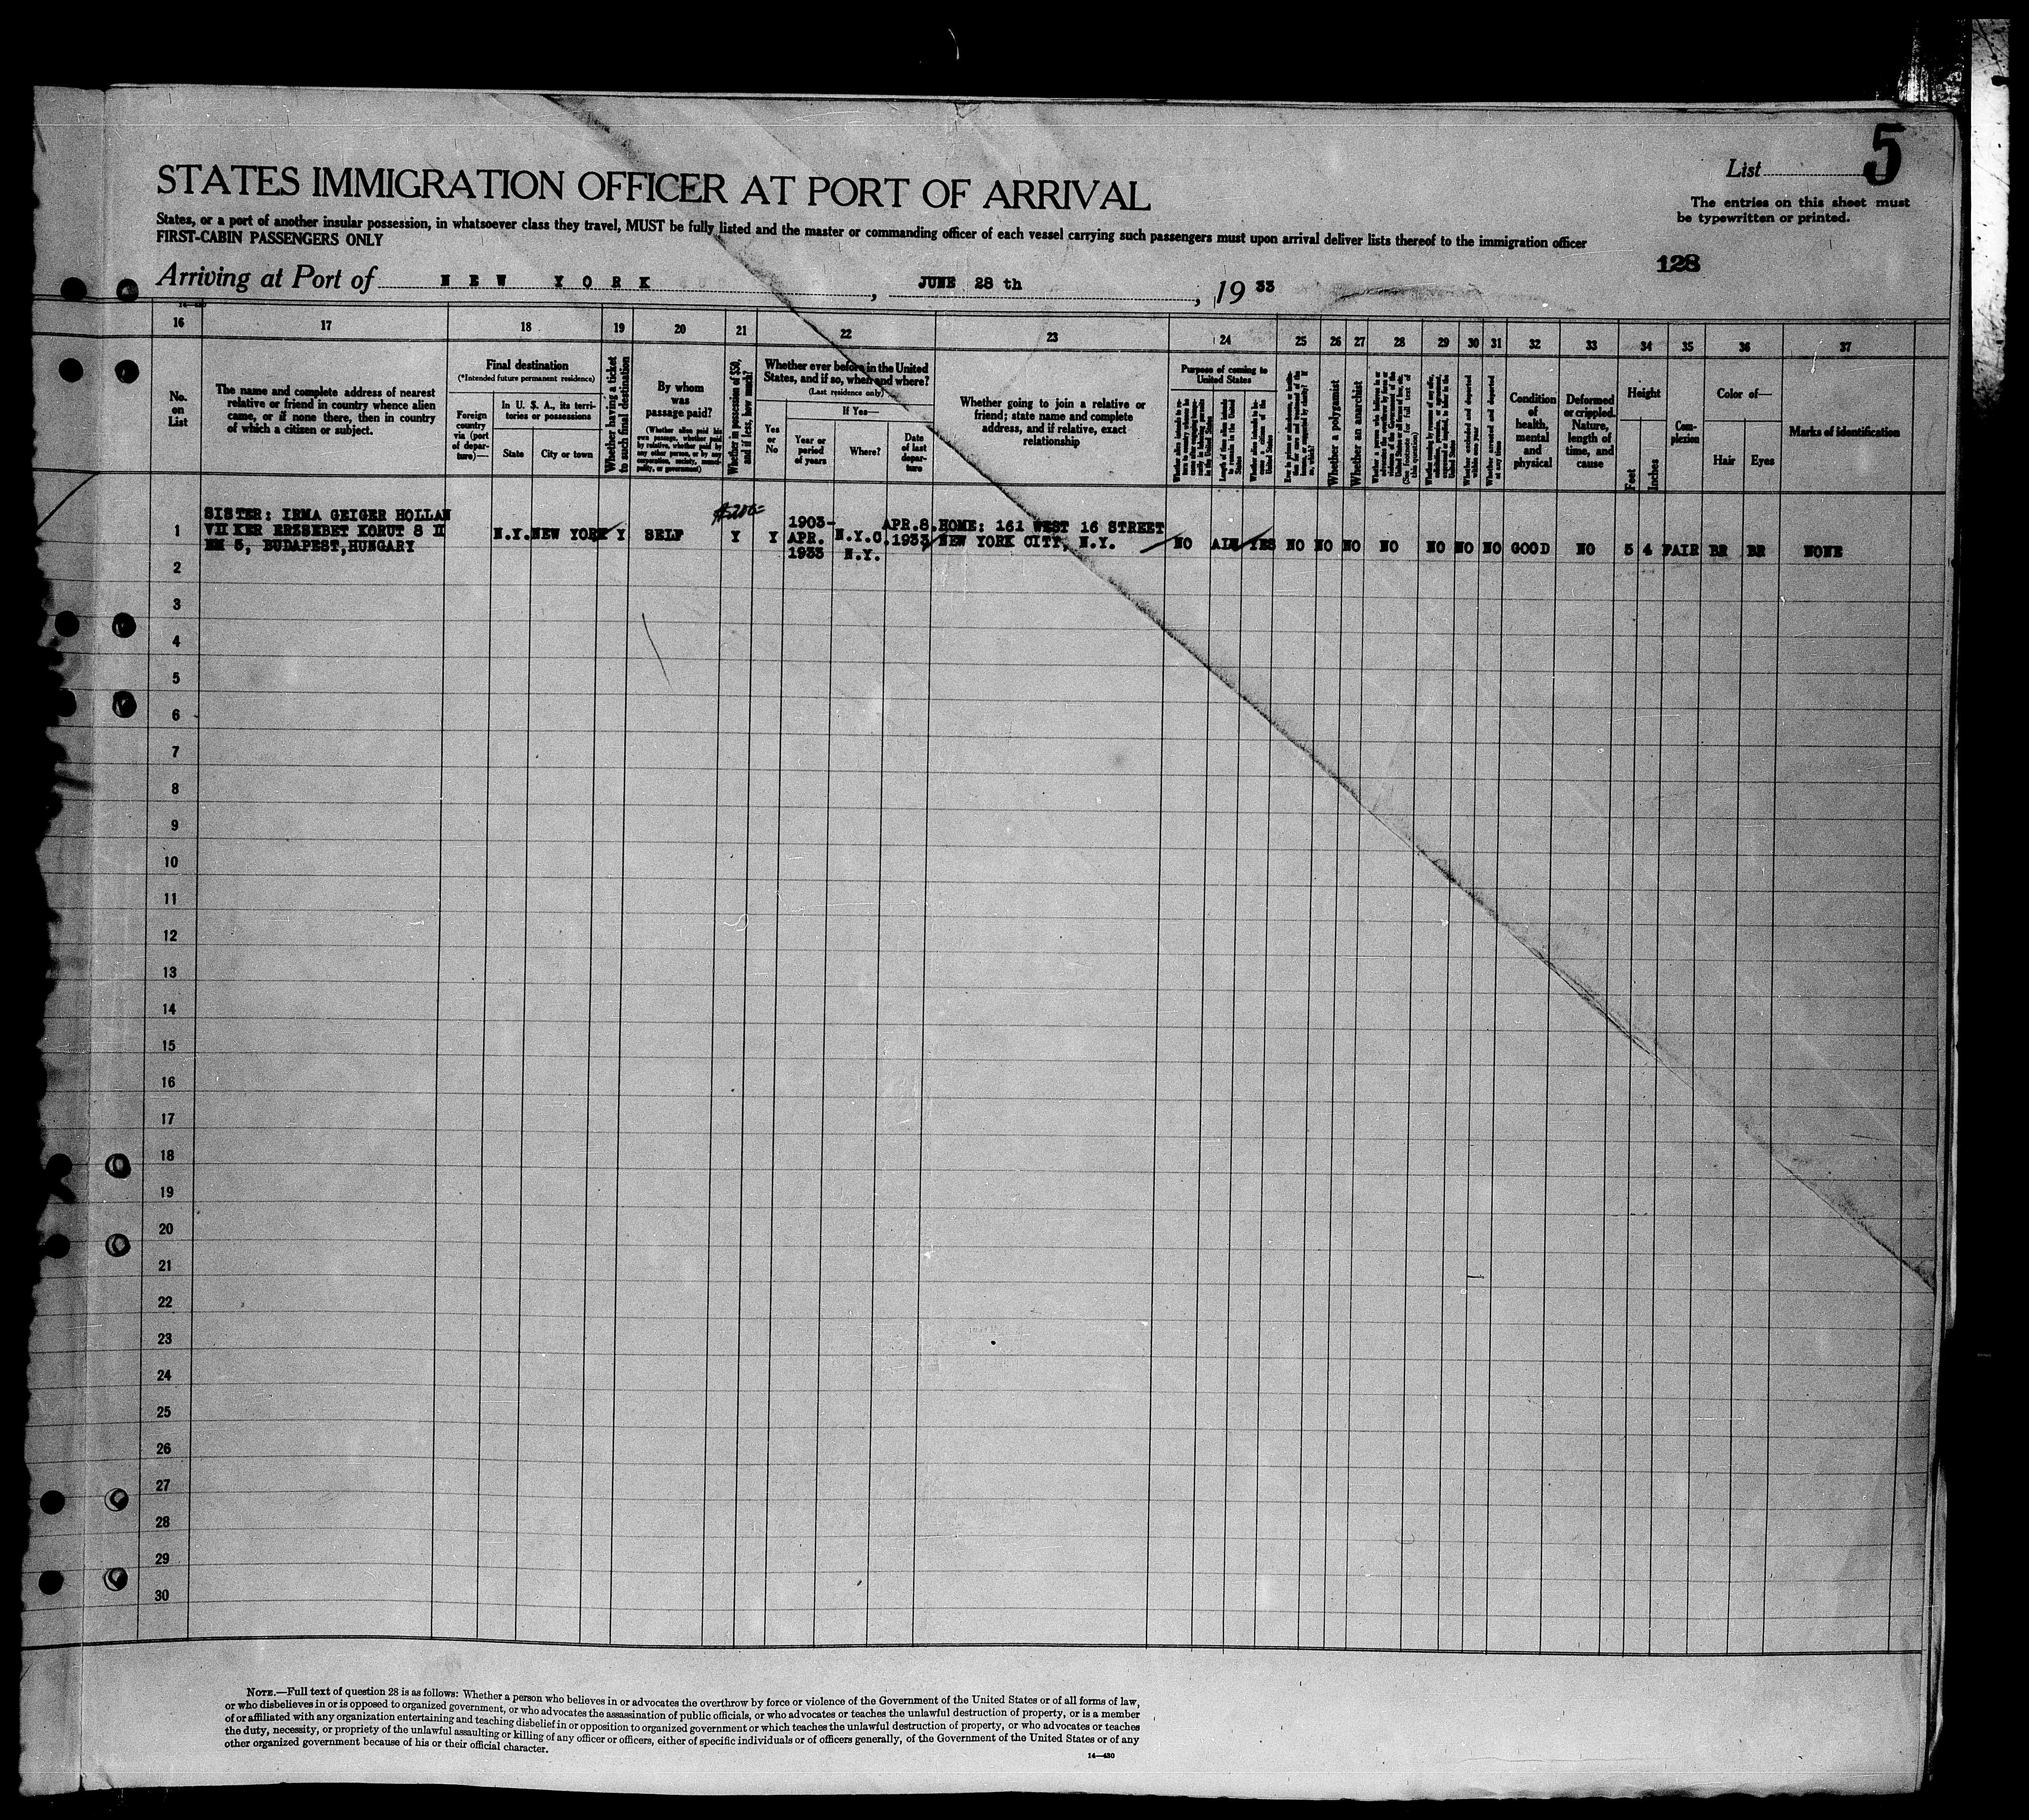 List 5
STATES IMMIGRATION OFFICER AT PORT OF ARRIVAL
The entries on this sheet must
be typewritten or printed.
States, or a port of another insular possession, in whatsoever class they travel, MUST be fully listed and the master or commanding officer of each vessel carrying such passengers must upon arrival deliver lists thereof to the immigration officer
FIRST-CABIN PASSENGERS ONLY
128
Arriving at Port of NEW YORK, JUNE 28 th, 19 33
16 17 18 19 20 21 22 23 24 25 26 27 28 29 30 31 32 33 34 35 36 37
No.
on
List
The name and complete address of nearest
relative or friend in country whence alien
came, or if none there, then in country
of which a citizen or subject.
Final destination
(*Intended future permanent residence)
Foreign
country
via (port
of depar-
ture)—
In U. S. A., its terri-
tories or possessions
State
City or town
Whether having a ticket
to such final destination
By whom
was
passage paid?
(Whether alien paid his
own passage, whether paid
by relative, whether paid by
any other person, or by any
corporation, society, munici-
pality, or government)
Whether in possession of $50,
and if less, how much?
Whether ever before in the United
States, and if so, when and where?
(Last residence only)
Yes
or
No
If Yes—
Year or
period
of years
Where?
Date
of last
depar-
ture
Whether going to join a relative or
friend; state name and complete
address, and if relative, exact
relationship
Purpose of coming to
United States
Length of time alien intends
to remain in the United
States
Whether alien intends to be-
come a citizen of the
United States
Whether a polygamist
Whether an anarchist
(See footnote for full text of
this question)
Whether excluded and deported
within one year
Whether arrested and deported
at any time
Condition
of
health,
mental
and
physical
Deformed
or crippled.
Nature,
length of
time, and
cause
Height
Feet
Inches
Com-
plexion
Color of—
Hair
Eyes
Marks of identification
$200-
SISTER: IRMA GEIGER HOLLAN
VII KER ERZSEBET KORUT 8 II
EM 5, BUDAPEST, HUNGARY
1 N.Y. NEW YORK Y SELF Y Y 1903-
APR.
1933
N.Y.C.
N.Y.
APR.8.
1933
HOME: 161 WEST 16 STREET
NEW YORK CITY, N.Y.
NO ALW YES NO NO NO NO NO NO NO GOOD NO 5 4 FAIR BR BR NONE
2
3
4
5
6
7
8
9
10
11
12
13
14
15
16
17
18
19
20
21
22
23
24
25
26
27
28
29
30
NOTE.—Full text of question 28 is as follows: Whether a person who believes in or advocates the overthrow by force or violence of the Government of the United States or of all forms of law,
or who disbelieves in or is opposed to organized government, or who advocates the assassination of public officials, or who advocates or teaches the unlawful destruction of property, or is a member
of or affiliated with any organization entertaining and teaching disbelief in or opposition to organized government or which teaches the unlawful destruction of property, or who advocates or teaches
the duty, necessity, or propriety of the unlawful assaulting or killing of any officer or officers, either of specific individuals or of officers generally, of the Government of the United States or of any
other organized government because of his or their official character.
14—430